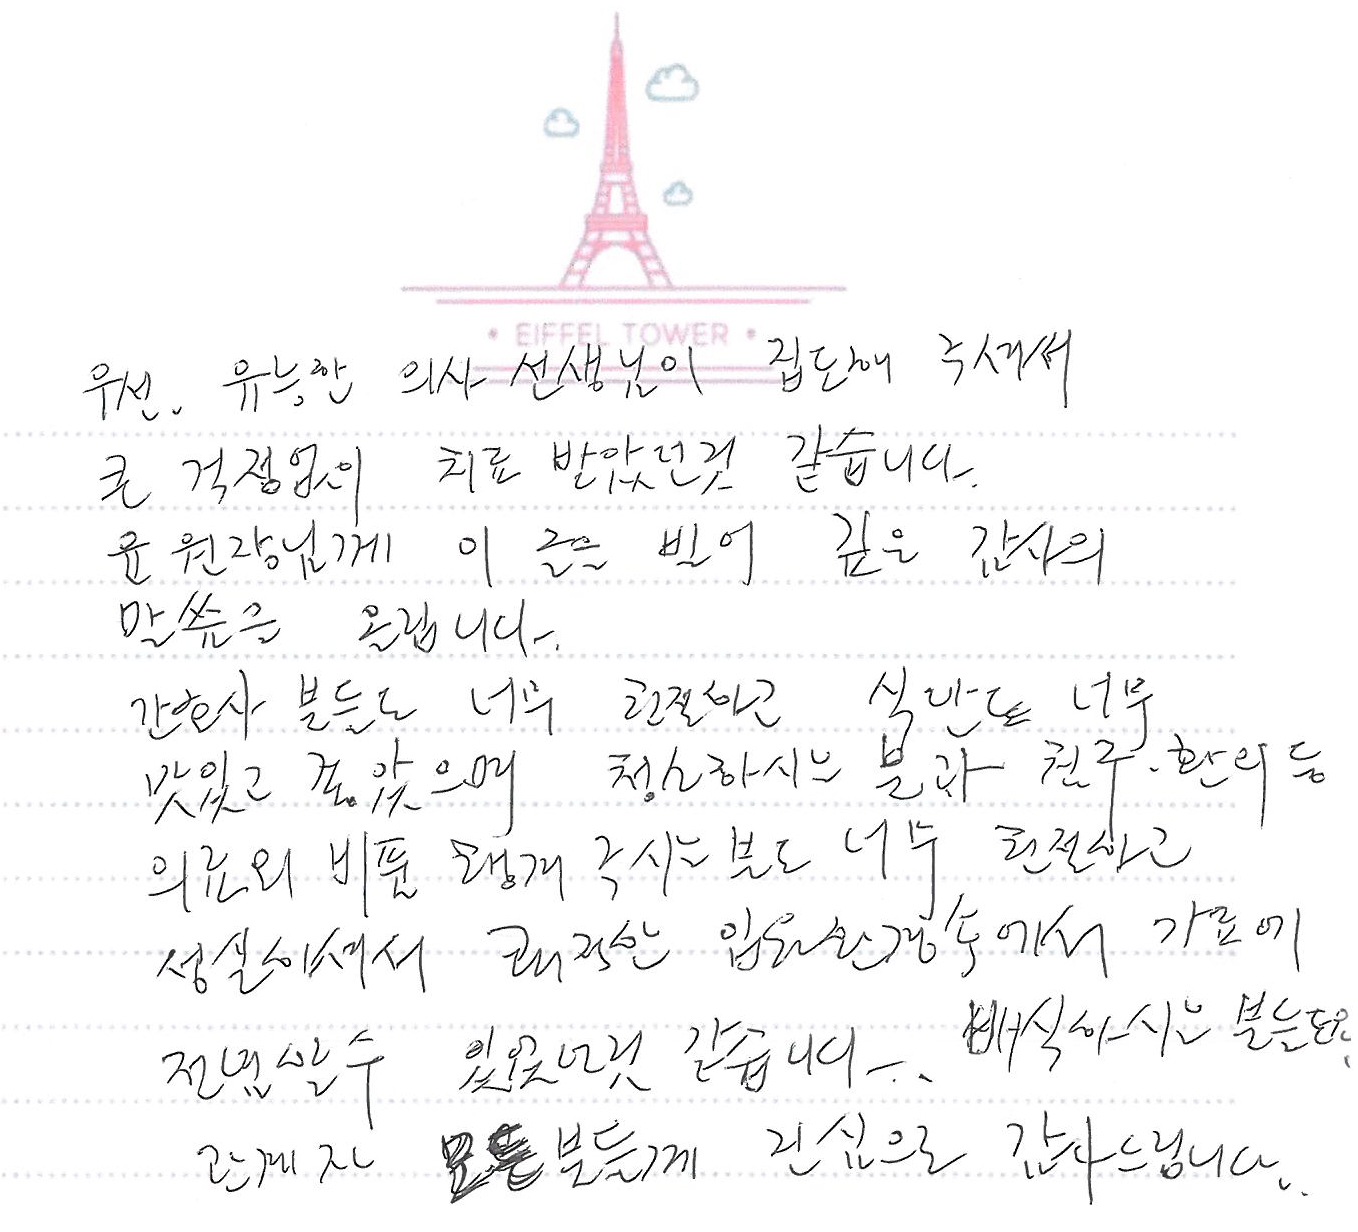 • EIFFEL TOWER •
우선. 유능한 의사 선생님이 집도해 주셔서
큰 걱정없이 치료 받았던것 같습니다.
윤원장님께 이 글을 빌어 깊은 감사의
말씀을 올립니다.
간호사 분들도 너무 친절하고 식단도 너무
맛있고 좋았으며 청소하시는 분과 환의 등
의료외 비품 챙겨 주시는 분도 너무 친절하고
성실하셔서 쾌적한 입원환경속에서 가료에
전념할수 있었던것 같습니다. 배식하시는 분들도
관계자 모든 분들께 진심으로 감사드립니다.